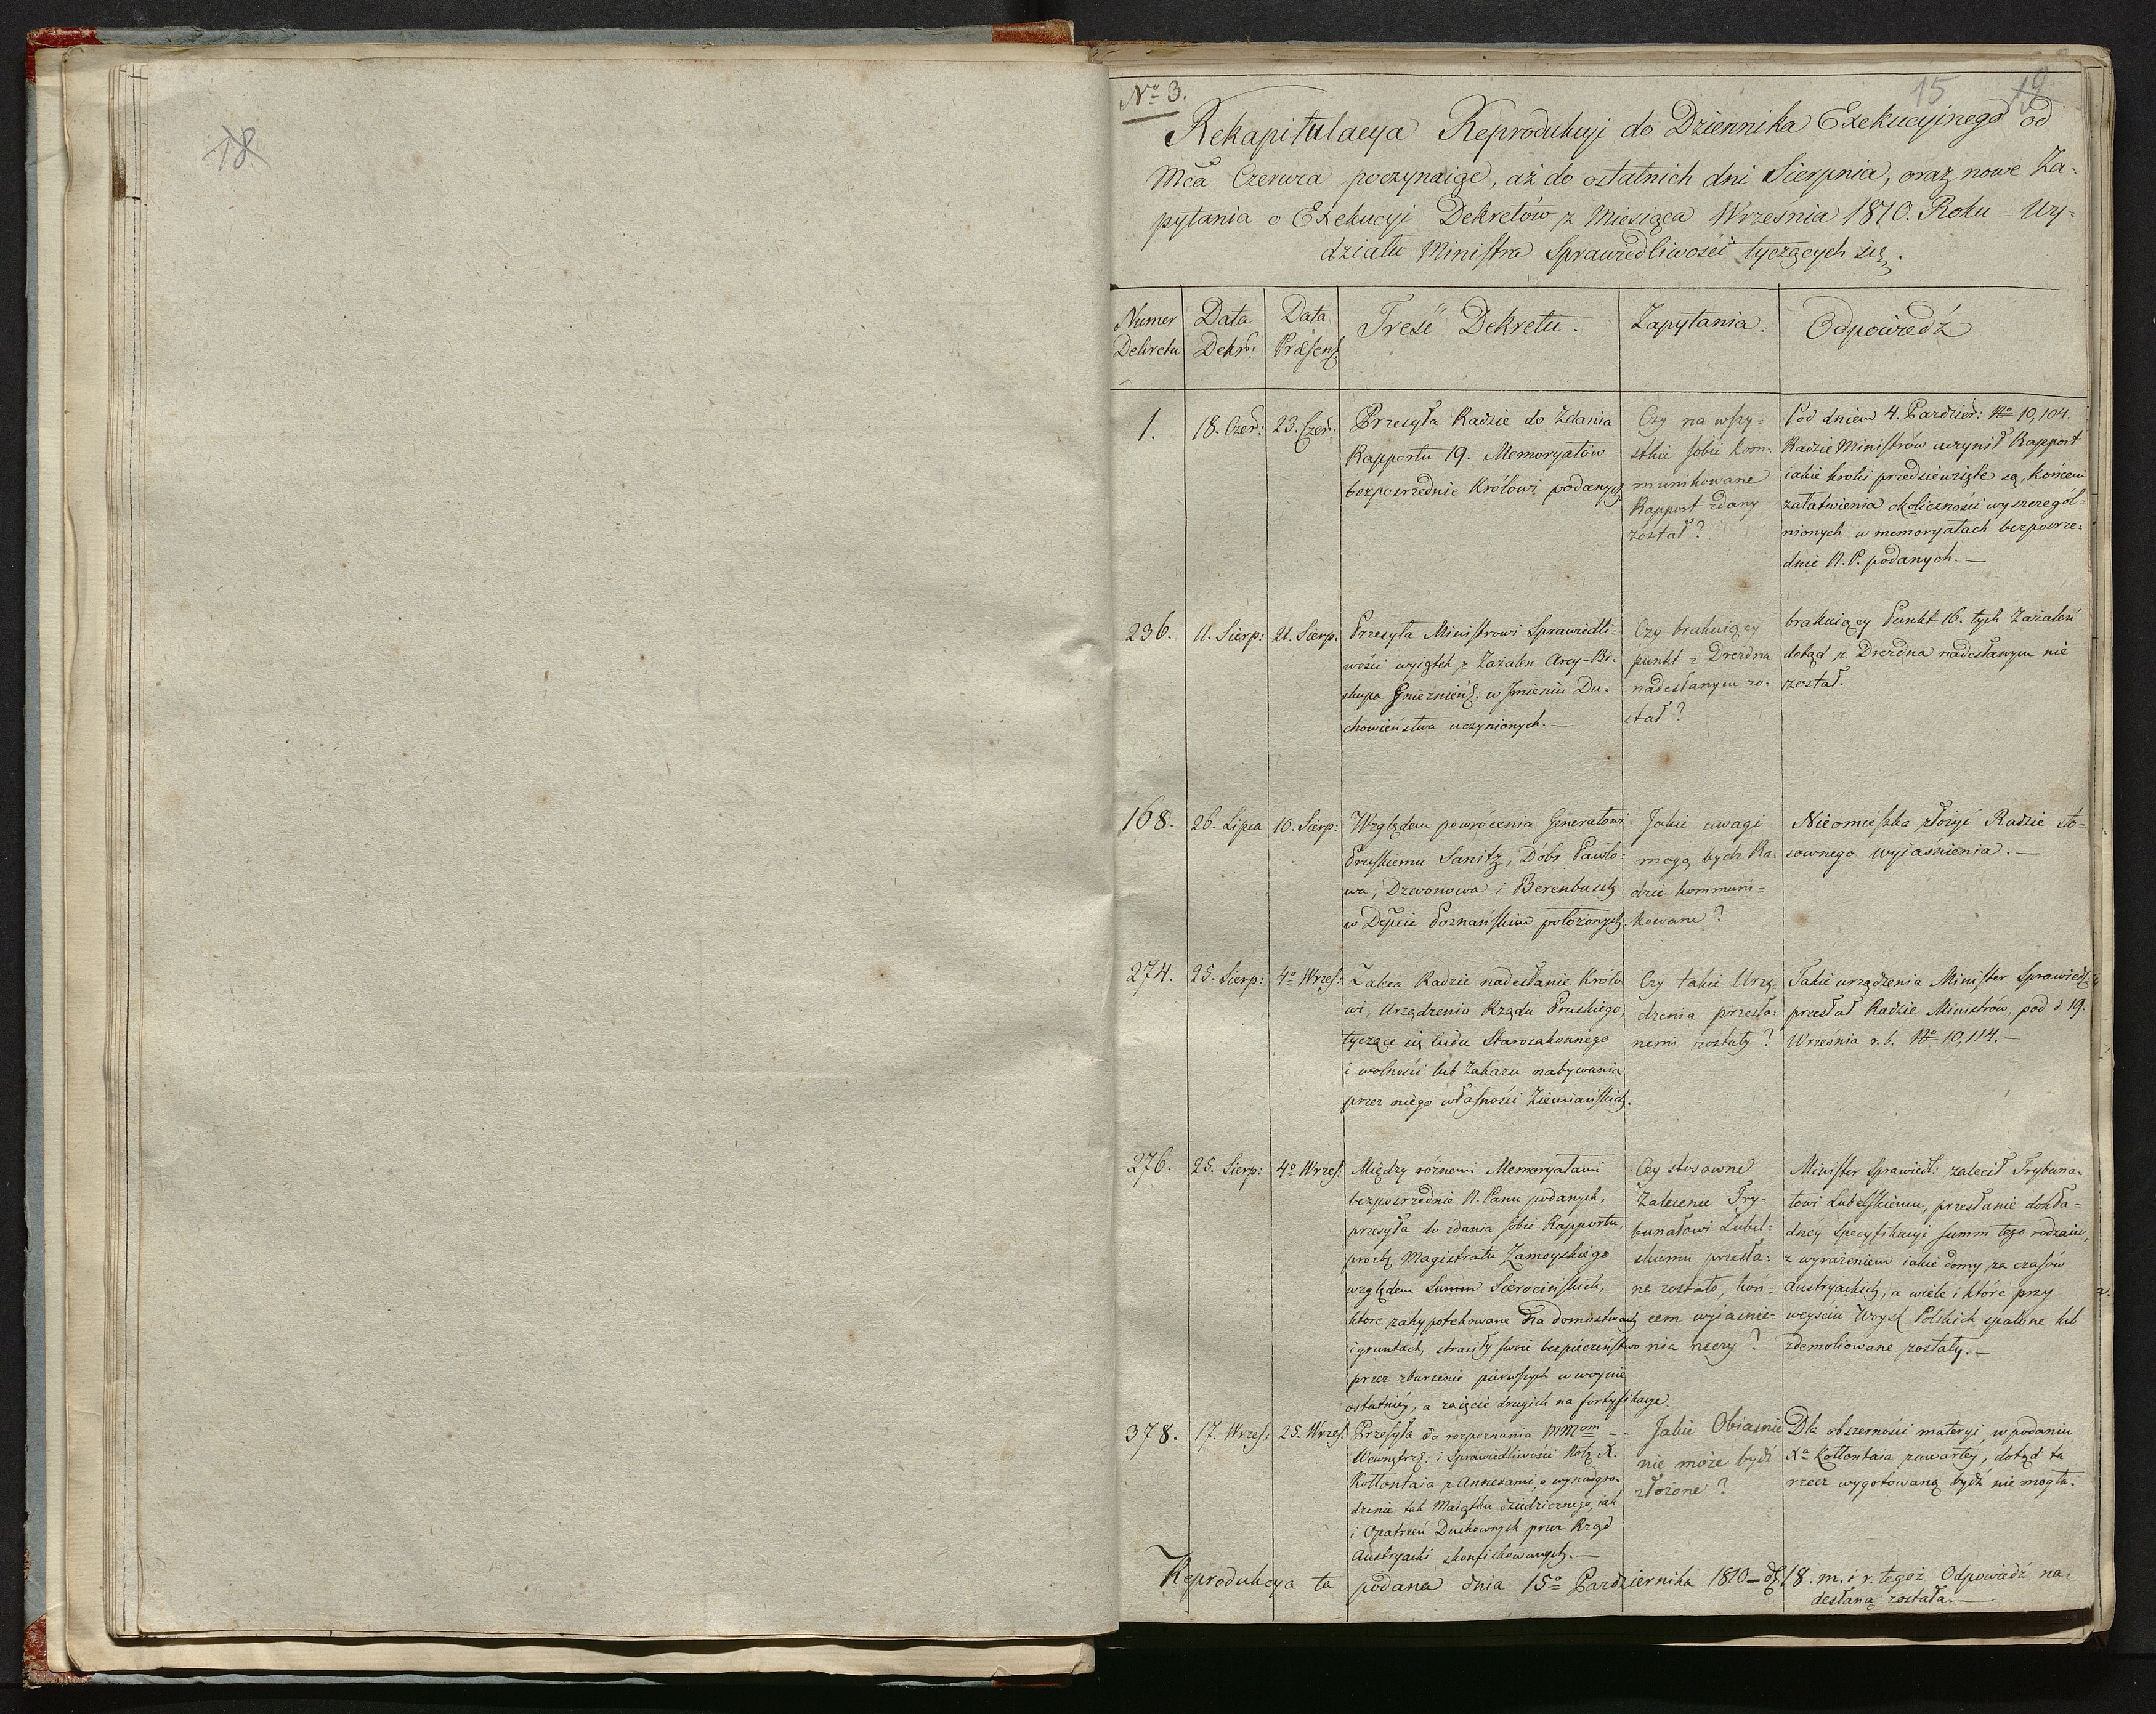 18
15 19
No 3.
Rekapitulacya Reprodukcyi do Dziennika Exekucyjnego od
Mca Czerwca poczynaiąc, aż do ostatnich dni Sierpnia, oraz nowe Za-
pytania o Exekucyi Dekretów z Miesiąca Września 1810. Roku - Wy-
działu Ministra Sprawiedliwości tyczących się.
Numer
Dekretu
Data
Dekr:
Data
Præsen
Treść Dekretu.
Zapytania.
Odpowiedź
1.
18. Czer:
23. Czer:
Przesyła Radzie do Zdania
Rapportu 19. Memoryałów
bezpośrednie Królowi podanych
Czy na wszy-
stkie sobie kom-
munikowane
Rapport zdany
został?
Pod dniem 4. Paździer: No 10,104.
Radzie Ministrów uczynił Rapport
iakie kroki przedsięwzięte są, końcem
załatwienia okoliczności wyszczegól-
nionych w memoryałach bezpośre-
dnie N. P. podanych.—
236.
11. Sierp:
21. Sierp:
Przesyła Ministrowi Sprawiedli-
wości wyiątek z Zażaleń Arcy-Bi-
skupa Gnieznień: w Jmieniu Du-
chowieństwa uczynionych.—
Czy brakuiący
punkt z Drezdna
nadesłanym zo-
stał?
brakuiący Punkt 16. tych Zażaleń
dotąd z Drezdna nadesłanym nie
został.
168.
26. Lipca
10. Sierp:
Względem powrócenia Generałowi
Pruskiemu Sanitz, Dóbr Pawło-
wa, Dzwonowa i Berenbusch
w Depcie Poznańskim położonych.
Jakie uwagi
mogą bydz Ra-
dzie kommuni-
kowane?
Nieomieszka złożyć Radzie sto-
sownego wyjaśnienia.—
274.
25. Sierp:
4o Wrzes:
Zaleca Radzie nadesłanie Królo
wi, Urządzenia Rządu Pruskiego,
tyczące się ludu Starozakonnego
i wolności lub Zakazu nabywania
przez niego własności Ziemiańskich.
Czy takie Urzą-
dzenia przesła-
nemi zostały?
Takie urządzenia Minister Sprawiedl:
przesłał Radzie Ministrów, pod d. 19.
Września r. b. No 10,114.—
276.
25. Sierp:
4o Wrzes:
Między róźnemi Memoryałami
bezpośrednie N. Panu podanych,
przesyła do zdania sobie Rapportu,
prośbę Magistratu Zamoyskiego
względem Summ Sierocińskich,
które zahypotekowane na domostwach
i gruntach, straciły swoie bezpieczeństwo
przez zburzenie pierwszych w woynie
ostatniéy, a zaięcie drugich na fortyfikacye.
Czy stosowne
Zalecenie Try-
bunałowi Lubel-
skiemu przesła-
ne zostało, koń-
cem wyjaśnie-
nia rzeczy?
Minister Sprawiedl: zalecił Trybuna-
łowi Lubelskiemu, przesłanie dokła-
dnéy Specyfikacyi summ tego rodzaiu,
z wyrażeniem iakie domy za czasów
Austryackich, a wiele i które przy
weyściu Woysk Polskich spalone lub
zdemoliowane zostały.—
378.
17. Wrzes:
25. Wrzes:
Przesyła do rozpoznania MMom
Wewnętrz: i Sprawiedliwości Notę X.
Kołłontaia z Annexami, o wynagro-
dzenie tak Maiątku dziedzicznego, iak
i Opatrzeń Duchownych przez Rząd
Austryacki skonfiskowanych.—
-- Jakie Obiaśnie
nie może bydź
złożone?
Dla obszerności materyi, w podaniu
Xa Kołłontaia zawartéy, dotąd ta
rzecz wygotowaną bydź nie mogła.
Reprodukcya ta podana dnia 15o Października 1810 - d 18. m. i r. tegoż Odpowiedź na-
desłaną została.—